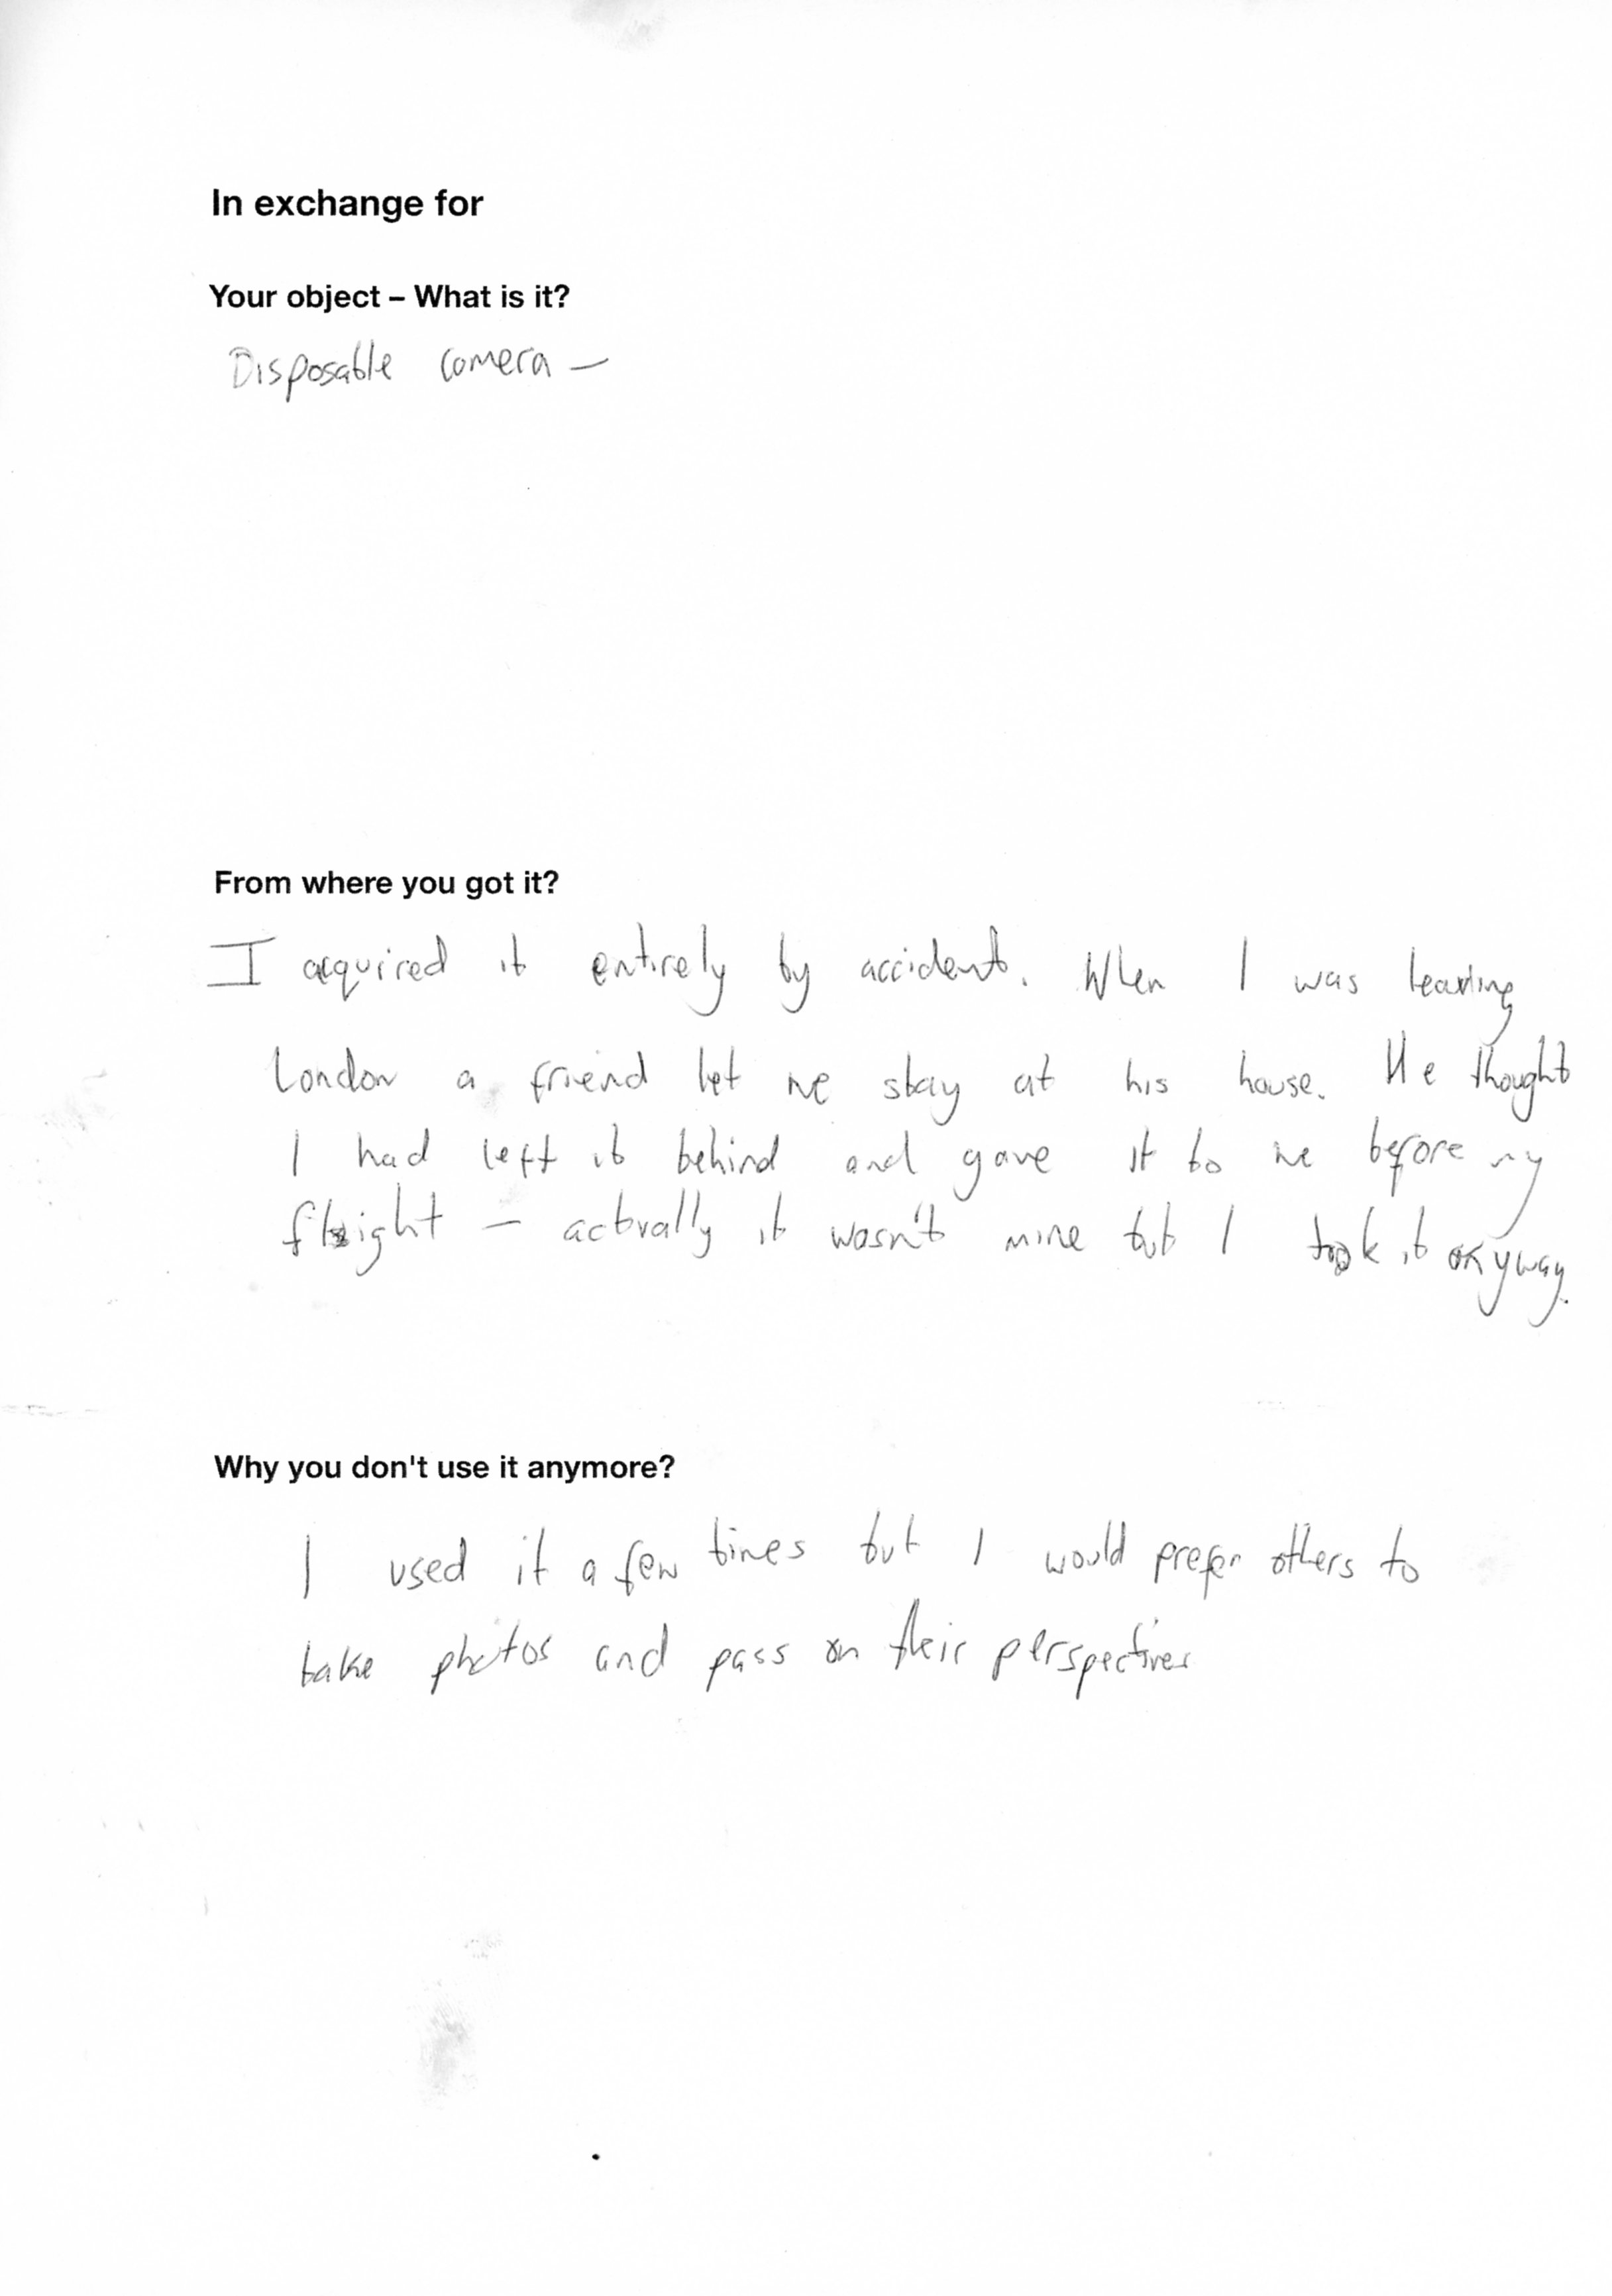 In exchange for
Your object – What is it?
Disposable camera —
From where you got it?
I acquired it entirely by accident. When I was leaving
London a friend let me stay at his house. He thought
I had left it behind and gave it to me before my
flight — actually it wasn't mine but I took it anyway.
Why you don't use it anymore?
I used it a few times but I would prefer others to
take photos and pass on their perspectives